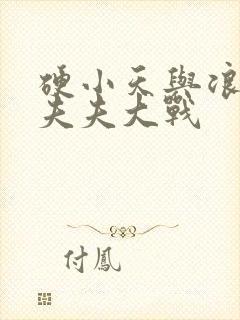 硬小天與浪
夫夫大戰
付鳳